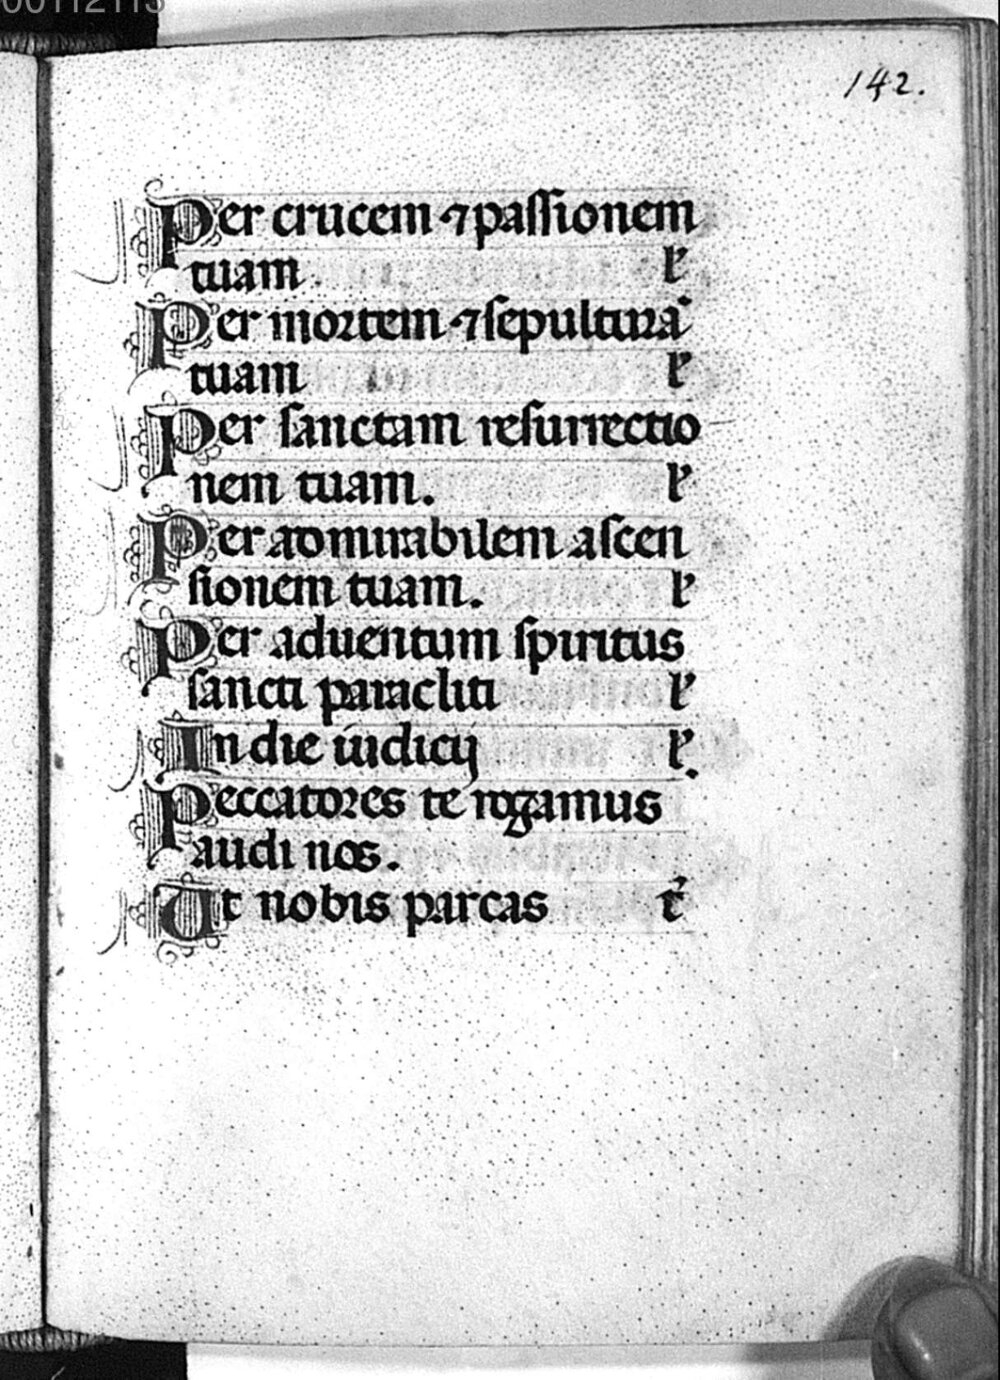 00112113
142.
Per crucem ⁊ passionem
tuam. l'
Per mortem ⁊ sepulturā
tuam l'
Per sanctam resurrectio
nem tuam. l'
Per admirabilem ascen
sionem tuam. l'
Per aduentum spiritus
sancti paracliti l'
In die iudicij l'.
Peccatores te rogamus
audi nos.
Ut nobis parcas t'